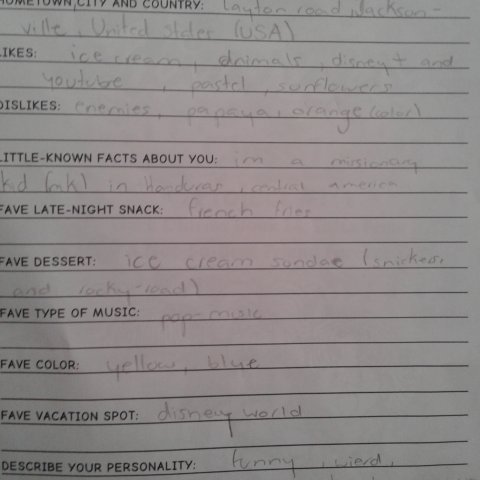 HOMETOWN, CITY AND COUNTRY: Layton road, Jackson-
ville, United States (USA)
LIKES: ice cream, animals, disney+ and
youtube, pastel, sunflowers
DISLIKES: enemies, papaya, orange (color)
LITTLE-KNOWN FACTS ABOUT YOU: im a missionary
kid (mk) in Honduras, central america
FAVE LATE-NIGHT SNACK: french fries
FAVE DESSERT: ice cream sundae (snickers,
and rocky-road)
FAVE TYPE OF MUSIC: pop-music
FAVE COLOR: yellow, blue
FAVE VACATION SPOT: disney world
DESCRIBE YOUR PERSONALITY: funny, wierd,